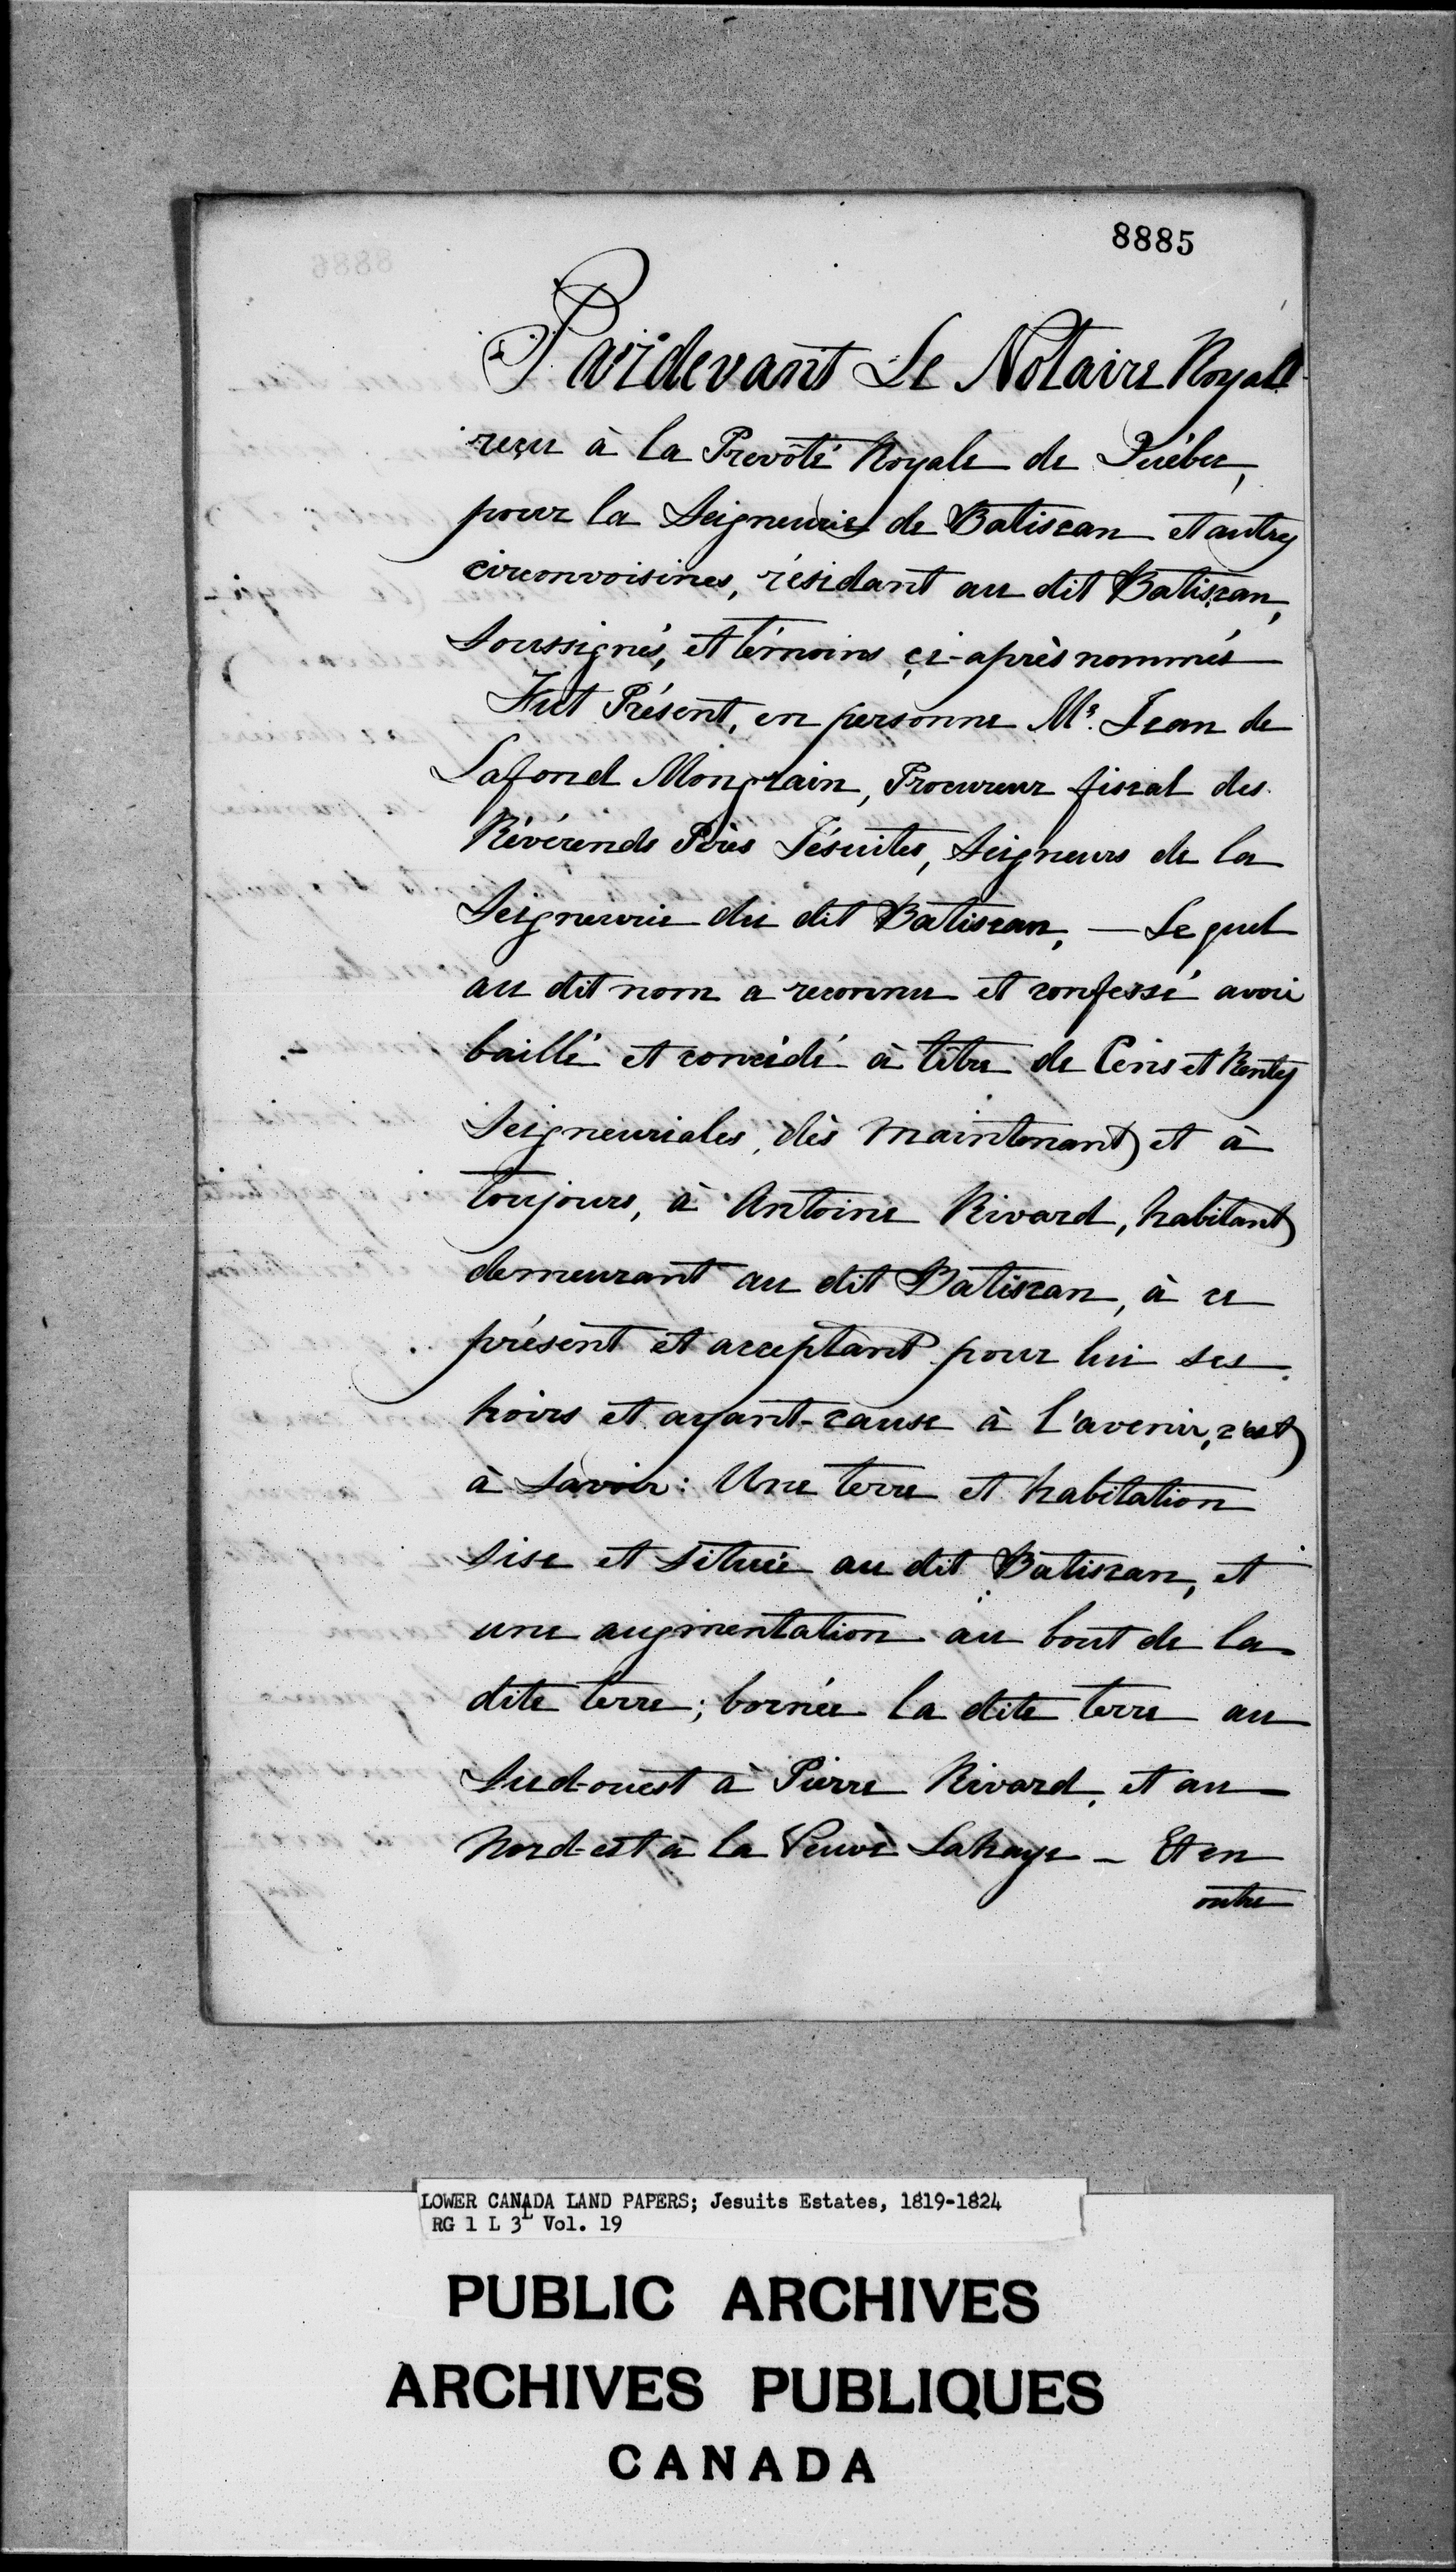 8885
Pardevant Le Notaire Royal
reçu à la Prevôté Royale de Québec,
pour la Seigneurie de Batiscan et autres
circonvoisines, résidant au dit Batiscan,
Soussignés, et témoins çi-après nommés
Fut Présent, en personne Mr. Jean de
Lafond Mongrain, Procureur fiscal des
Révérends Pères Jésuites, Seigneurs de la
Seigneurie du dit Batiscan, — Lequel
au dit nom a reconnu et confessé avoir
baillé et concédé à titre de Cens et Rentes
Seigneuriales, dès maintenant et à
toujours, à Antoine Rivard, habitant
demeurant au dit Batiscan, à ce
présent et acceptant pour lui ses
hoirs et ayant-cause à l'avenir, c'est
à Savoir : Une terre et habitation
sise et située au dit Batiscan, et
une augmentation au bout de la
dite terre ; bornée la dite terre au
Sud-ouest à Pierre Rivard, et au
Nord-est à la Veuve Lahaye – Et en
outre
LOWER CANADA LAND PAPERS; Jesuits Estates, 1819-1824
RG 1 L 3L Vol. 19
PUBLIC ARCHIVES
ARCHIVES PUBLIQUES
CANADA